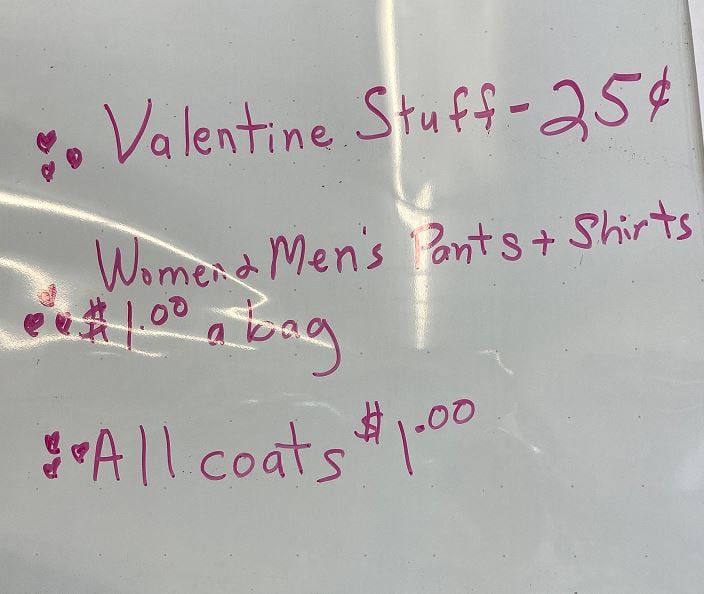 Valentine Stuff - 25¢
Women & Men's Pants + Shirts
$1.00 a bag
All coats $1.00